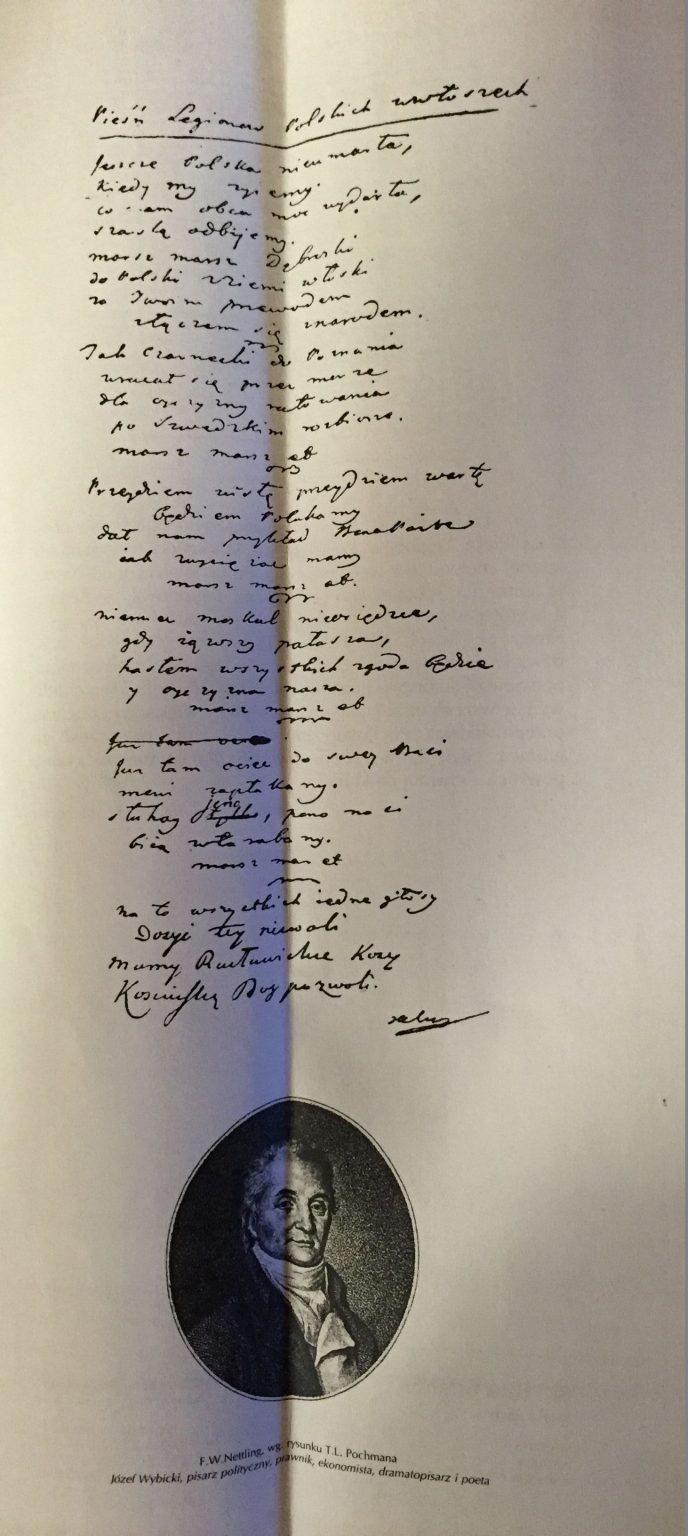 Pieśń Legionow Polskich wewłoszech
Jeszcze Polska nieumarła,
kiedy my żyjemy.
co nam obca moc wydarła,
szablą odbijemy.
marsz marsz Dąbrowski
do Polski z ziemi włoski
za Twoim przewodem
złączem się znarodem.
Jak Czarnecki do Poznania
wracał się przez morze
dla oyczyzny ratowania
po Szwedzkim rozbiorze.
marsz marsz etc
Przeydziem wisłę przeydziem wartę
będziem Polakamy
dał nam przykład Bonaparte
iak zwyciężać mamy
marsz marsz etc.
niemiec moskal nieosiędzie,
gdy iąwszy pałasza,
hasłem wszystkich zgoda będzie
y oyczyzna nasza.
marsz marsz etc
Już tam
Już tam ociec do swey Basi
mówi zapłakany.
słuchay jeno, pono nasi
biią wtarabany.
marsz marsz etc
na to wszystkich iedne głosy
Dosyć tey niewoli
mamy Racławickie Kosy
Kościuszkę Bóg pozwoli.
F.W.Nettling, wg. rysunku T.L. Pochmana
Józef Wybicki, pisarz polityczny, prawnik, ekonomista, dramatopisarz i poeta